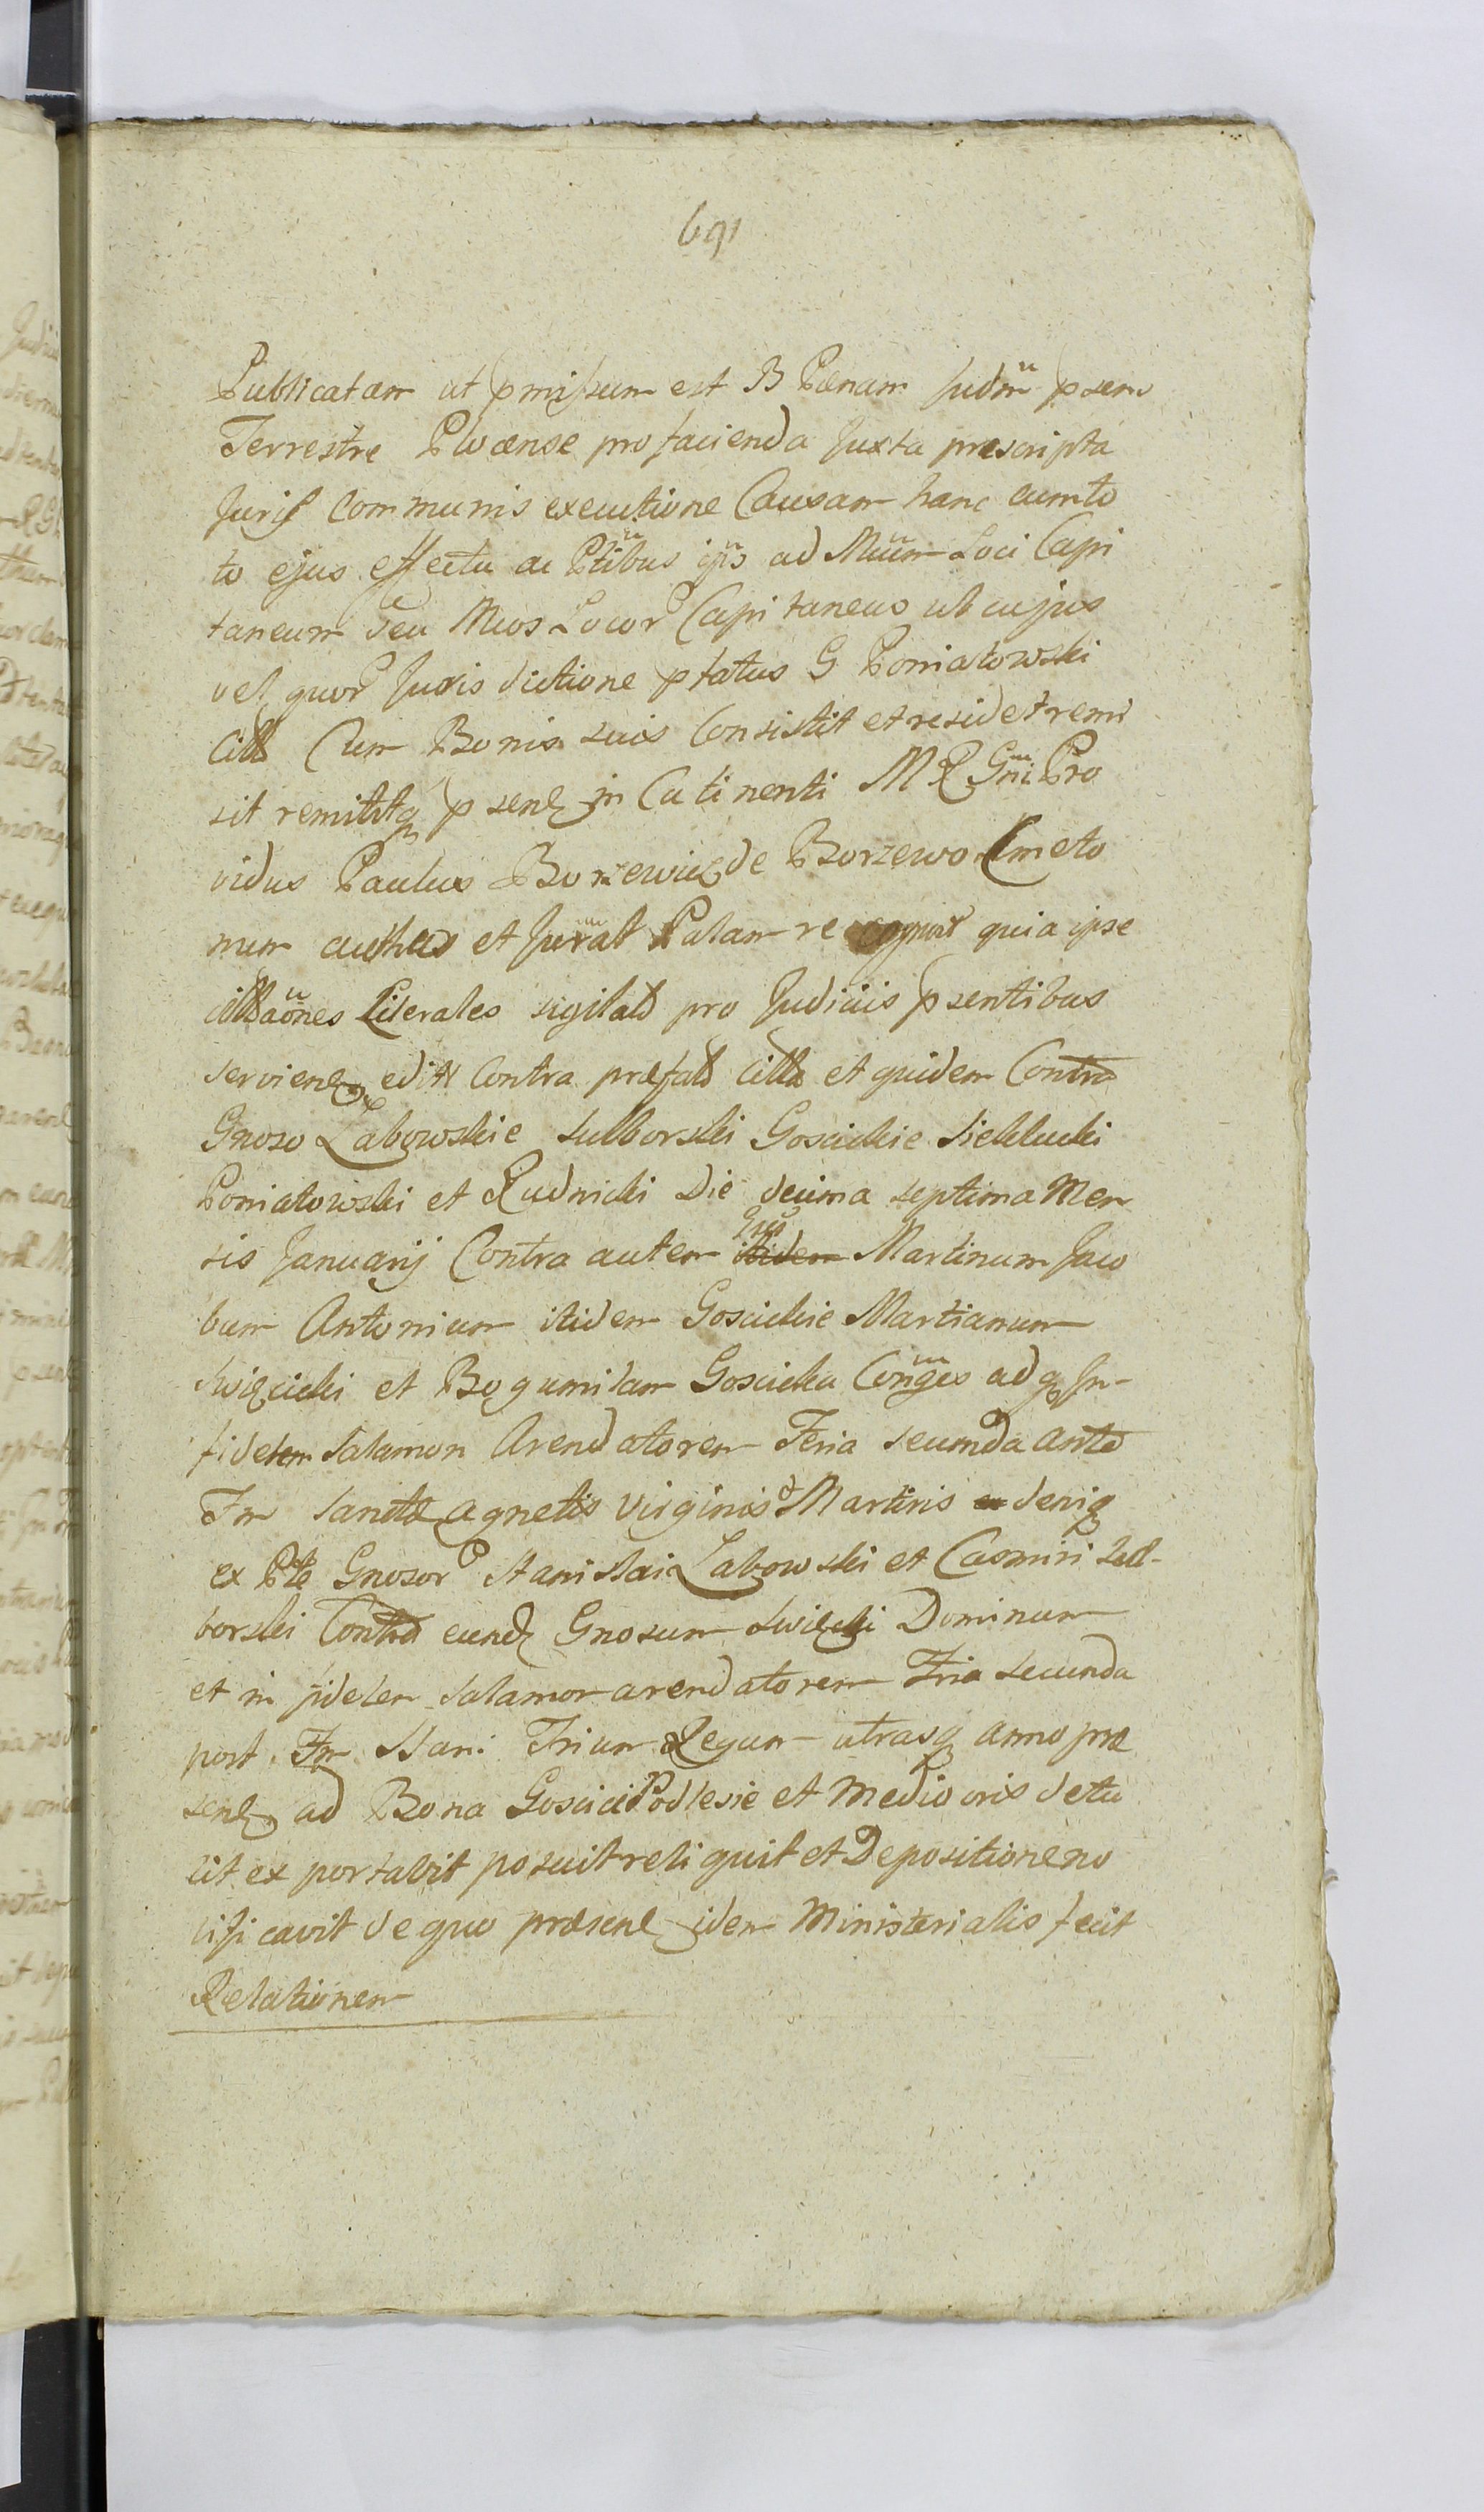 691
Publicatam ut pmissum est B Pœnam Judm psens
Terrestre Plocense pro facienda Juxta prescripta
Juris Communis executione Causam hanc cum to
to ejus effectu ac Ptibus ips ad Mum Loci Capi
taneum seu Mcos Locor Capitaneos ub cujus
vel quor Jurisdictione ptatus G Poniatowski
Citts Cum Bonis suis Consistit et residet remi
sit remittitq psenz in Catinenti M R Gni Pro
vidus Paulus Borzewicz de Borzewo Kmeto
num authus et Jurat Palam recognovit quia ipse
cittaones Literales sigilatas pro Judiciis psentibus
servienz edit Contra præfatt citts et quidem Contra
Gnoso Labowskie Sulborski Goscickie Sieklucki
Poniatowski et Rudnicki Die decima septima Men
sis Januarij Contra autem itidem Gnos Martinum Jaco
bum Antonium itidem Goscickie Martianum
Swięcicki et Bogumilam Goscicka Conges ad q In-
fidelem Salamon Arendatorem Feria secunda ante
Fm Sanctæ Agnetis Virginis et Martiris deniq
ex Pte Gnosor Stanislai Labowski et Casmiri Sul-
borski Contra eundz Gnosum Swięcki Dominum
et in fidelem Salamon arendatorem Fria secunda
post Fm SSani Trium Regum utrasq anno præ
senz ad Bona Goscicie Podlesie et Mediocris detu
lit ex portavit posuit reliquit et Depositione no
tificavit de quo præsenz idem Ministerialis fecit
Relationem